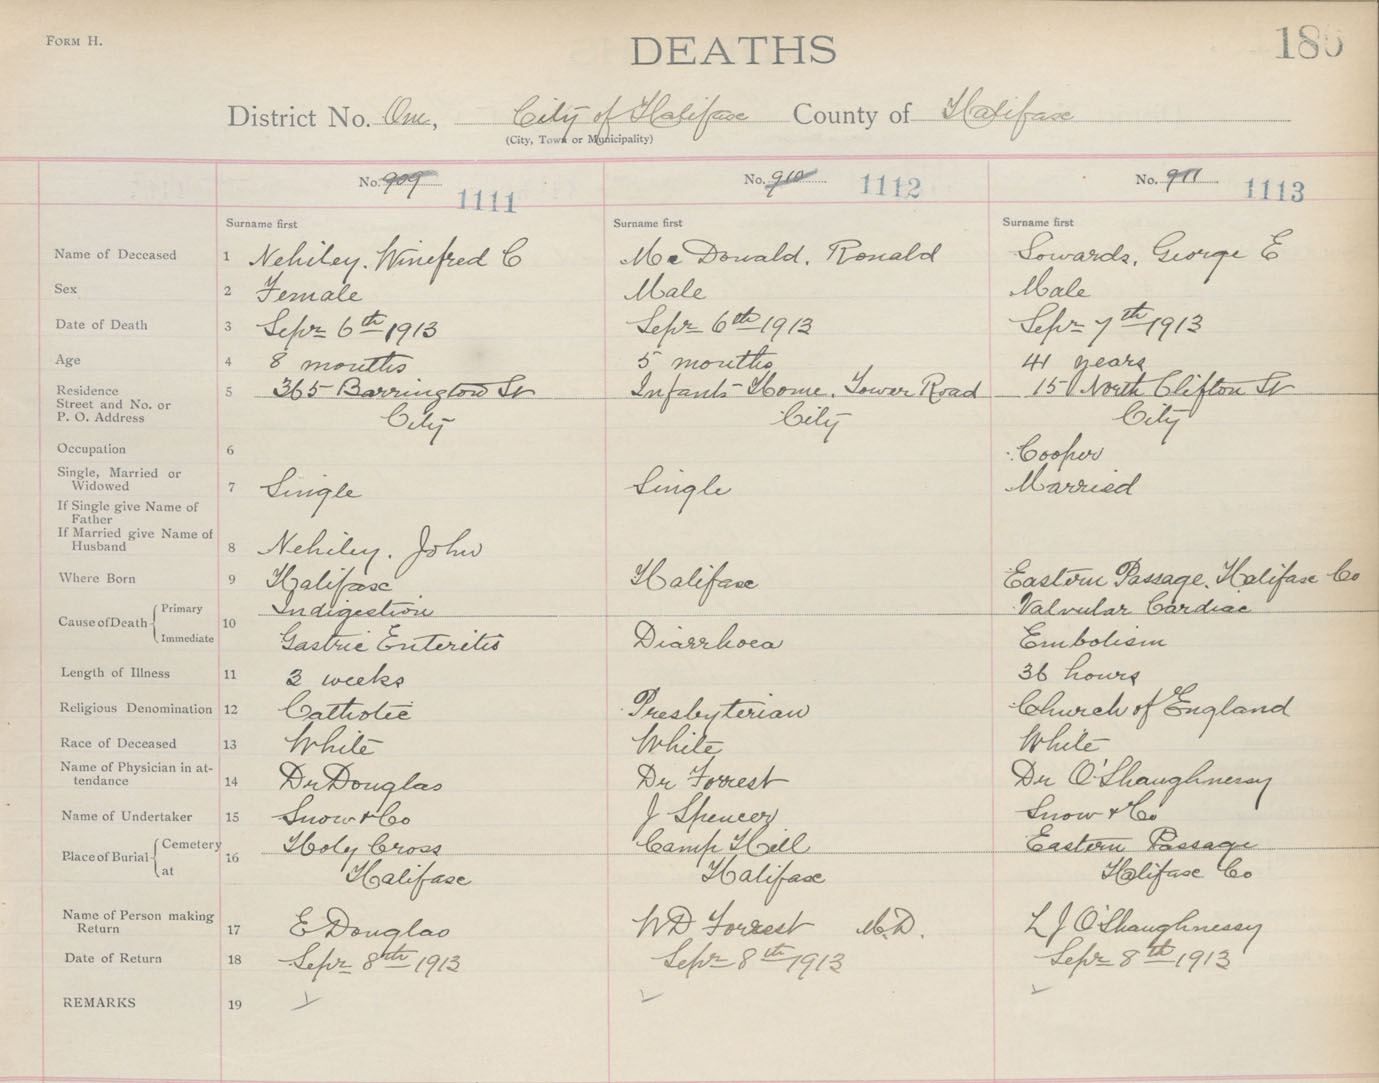 FORM H.
DEATHS
District No. One, City of Halifax County of Halifax
(City, Town or Municipality)
No. 909 1111 No. 910 1112 No. 911 1113
Surname first Surname first Surname first
Name of Deceased 1 Nehiley. Winefred C McDonald. Ronald Sowards. George E
Sex 2 Female Male Male
Date of Death 3 Sept 6th 1913 Sept 6th 1913 Sept 7th 1913
Age 4 8 months 5 months 41 years
Residence 5 365 Barrington St Infants Home. Tower Road 15 North Clifton St
Street and No. or
P. O. Address City City City
Occupation 6 Cooper
Single, Married or
Widowed 7 Single Single Married
If Single give Name of
Father
If Married give Name of
Husband 8 Nehiley. John
Where Born 9 Halifax Halifax Eastern Passage. Halifax Co
Cause of Death Primary 10 Indigestion Valvular Cardiac
Immediate Gastric Enteritis Diarrhoea Embolism
Length of Illness 11 3 weeks 36 hours
Religious Denomination 12 Catholic Presbyterian Church of England
Race of Deceased 13 White White White
Name of Physician in at-
tendance 14 Dr Douglas Dr Forrest Dr O'Shaughnessy
Name of Undertaker 15 Snow & Co J Spencer Snow & Co
Place of Burial Cemetery 16 Holy Cross Camp Hill Eastern Passage
at Halifax Halifax Halifax Co
Name of Person making
Return 17 E Douglas WD Forrest M.D. L J O'Shaughnessy
Date of Return 18 Sept 8th 1913 Sept 8th 1913 Sept 8th 1913
REMARKS 19